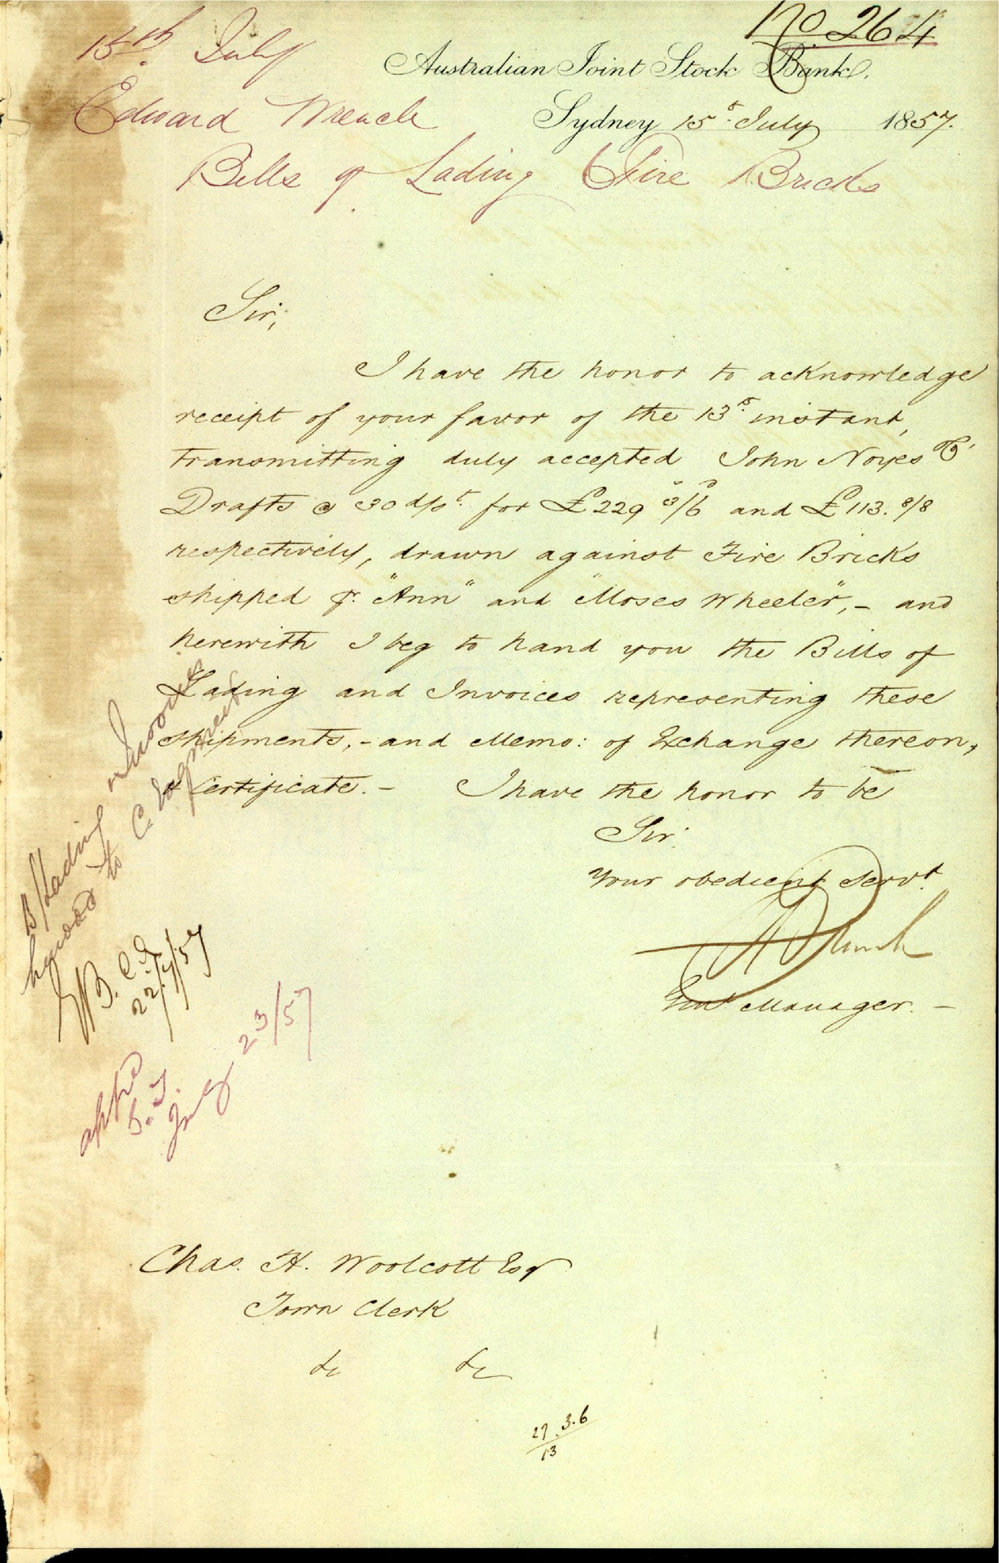 No 264
15th July
Australian Joint Stock Bank.
Edward Wrench
Sydney 15th July 1857.
Bills of Lading Fire Bricks
Sir,
I have the honor to acknowledge
receipt of your favor of the 13th instant,
transmitting duly accepted John Noyes Co's
Drafts @ 30 d/st for £229 " 3/6 and £113. 8/8
respectively, drawn against Fire Bricks
shipped pr. "Ann" and "Moses Wheeler", - and
herewith I beg to hand you the Bills of
Lading and Invoices representing these
shipments, - and Memo: of Exchange thereon,
& Certificate. - I have the honor to be
Sir,
Your obedient Servt.
Wrench
Genl Manager. -
B/Lading & Invoices
handed to C. Engineer
22/7/57
July 23/57
Chas. H. Woolcott Esqr
Town Clerk
&c &c
3.6
13